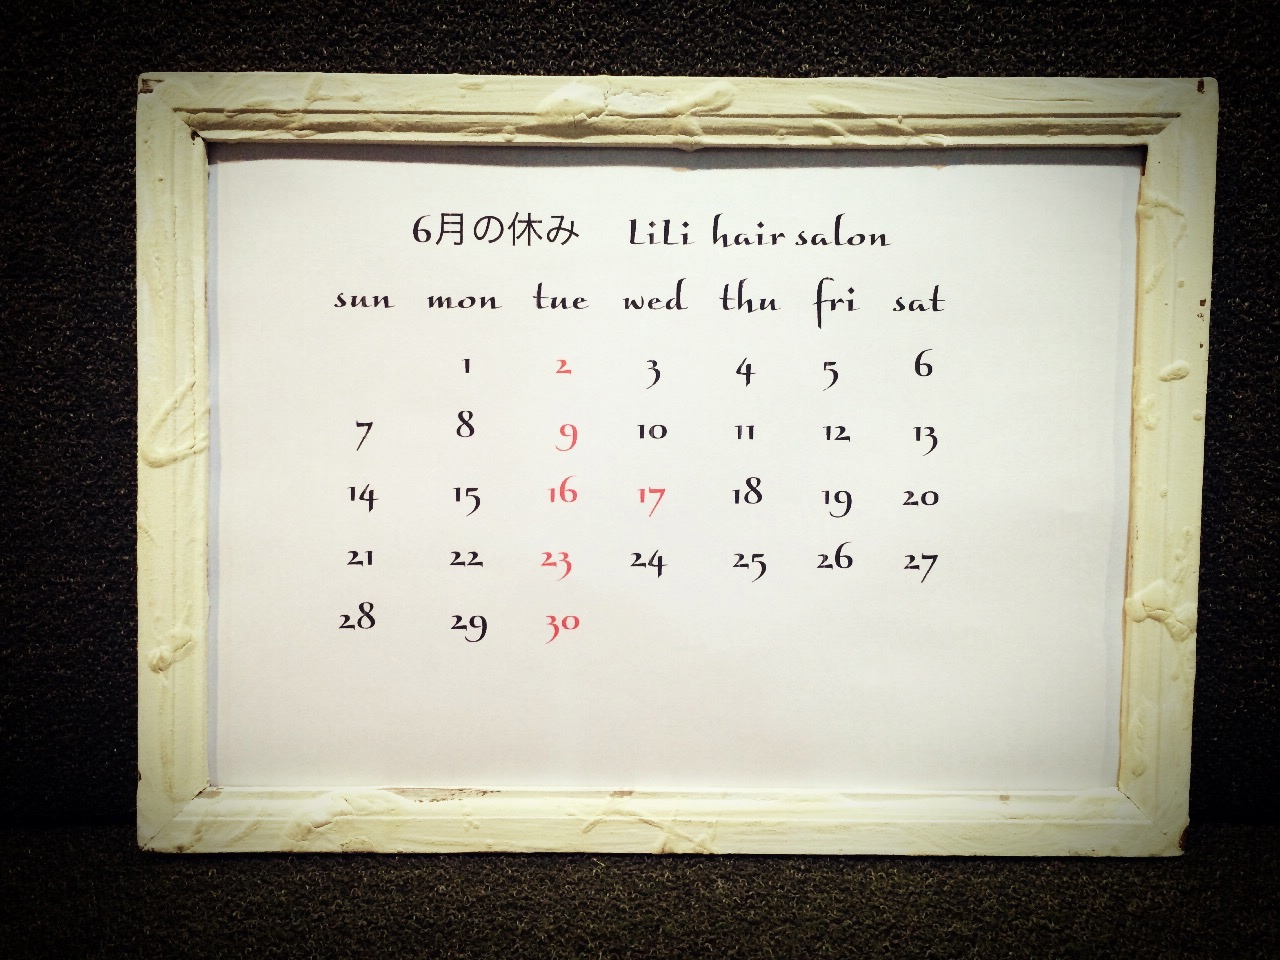 6月の休み LiLi hair salon
sun mon tue wed thu fri sat
1 2 3 4 5 6
7 8 9 10 11 12 13
14 15 16 17 18 19 20
21 22 23 24 25 26 27
28 29 30